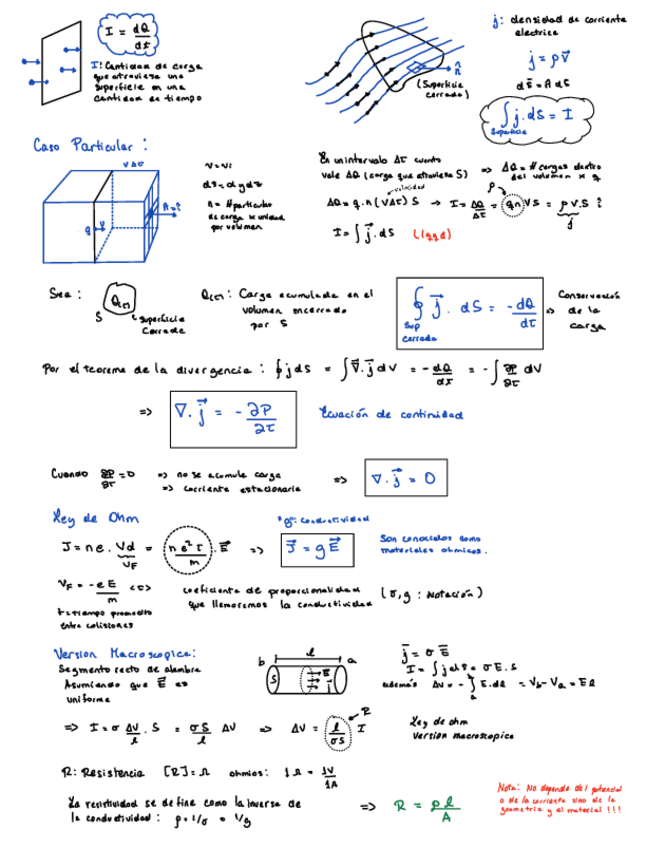 I = dQ/dt
I: Cantidad de carga
que atraviesa una
superficie en una
cantidad de tiempo
n̂
(Superficie
cerrada)
j: densidad de corriente
electrica
j = ρv⃗
ds⃗ = n̂ ds
∫ j . ds = I
Superficie
Caso Particular:
vΔτ
q v
v = vi
ds = dydz
n = # particulas
de carga x unidad
por volumen
En un intervalo Δτ cuanto
vale ΔQ (carga que atraviesa S) => ΔQ = # cargas dentro
del volumen x q
velocidad
ΔQ = q.n(vΔτ) S → I = ΔQ/Δτ = qn vS = ρv.S
ρ
j
I = ∫ j⃗ . ds (lqqd)
Sea:
Q(τ)
S
superficie
cerrada
Q(τ): Carga acumulada en el
volumen encerrado
por S
∮ j⃗ . dS = -dQ/dτ
Sup
cerrada
=> Conservación
de la
carga
Por el teorema de la divergencia: ∮ j ds = ∫ ∇⃗. j⃗ dv = -dQ/dτ = -∫ ∂ρ/∂τ dV
=> ∇. j⃗ = -∂ρ/∂τ Ecuación de continuidad
Cuando ∂ρ/∂τ = 0 => no se acumula carga
=> corriente estacionaria
=> ∇. j⃗ = 0
Ley de Ohm
"g": conductividad
J = ne . Vd = ne²τ/m . E⃗ => J⃗ = gE⃗
VF
Son conocidos como
materiales ohmicos.
VF = -eE/m τ
τ = tiempo promedio
entre colisiones
coeficiente de proporcionalidad
que llamaremos la conductividad (σ, g : Notación)
Version Macroscopica:
Segmento recto de alambre
Asumiendo que E⃗ es
uniforme
l
b a
S E⃗ j
j⃗ = σ E⃗
I = ∫ j ds = σE.S
además ΔV = -∫ E.dl = Vb - Va = El
=> I = σ ΔV/l . S = σS/l ΔV => ΔV = l/σS I
R
Ley de ohm
version macroscopica
R: Resistencia [R] = Ω ohmios: 1Ω = 1V/1A
La resistividad se define como la inversa de
la conductividad: ρ = 1/σ = 1/g
=> R = ρl/A
Nota: No depende del potencial
o de la corriente sino de la
geometria y el material!!!